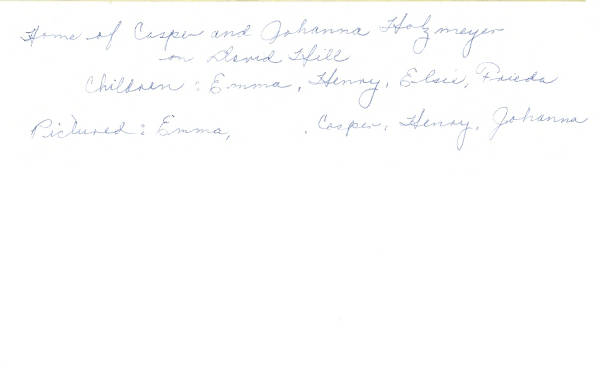 Home of Casper and Johanna Holzmeyer
on David Hill
Children: Emma, Henry, Elsie, Frieda
Pictured: Emma,          , Casper, Henry, Johanna